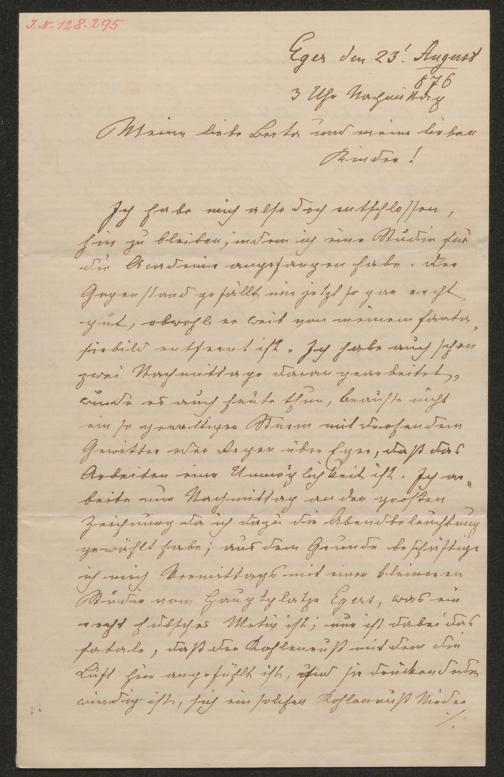 J.N. 128.295
Eger den 23t August
876
3 Uhr Nachmittag
Meine liebe Berta und meine lieben
Kinder!
Ich habe mich also doch entschlossen,
hier zu bleiben, indem ich eine Studie für
die Academie angefangen habe. Der
Gegenstand gefällt mir jetzt so gar recht
gut, obwohl er weit von meinem Fanta¬
siebild entfernt ist. Ich habe auch schon
zwei Nachmittage daran gearbeitet,
würde es auch heute thun, brauste nicht
ein so gewaltiger Sturm mit drohendem
Gewitter oder Regen über Eger, daß das
Arbeiten eine Unmöglichkeit ist. Ich ar¬
beite nur Nachmittag an der großen
Zeichnung da ich dazu die Abendbeleuchtung
gewählt habe; aus dem Grunde beschäftige
ich mich Vormittags mit einer kleineren
Studie vom Hauptplatze Egers, was ein
recht hübsches Motiv ist; nur ist dabei das
fatale, daß der Kohlenruß mit dem die
Luft hier angefüllt ist, und sie drückend oder
windig ist, sich ein solcher Kohlenruß Nieder